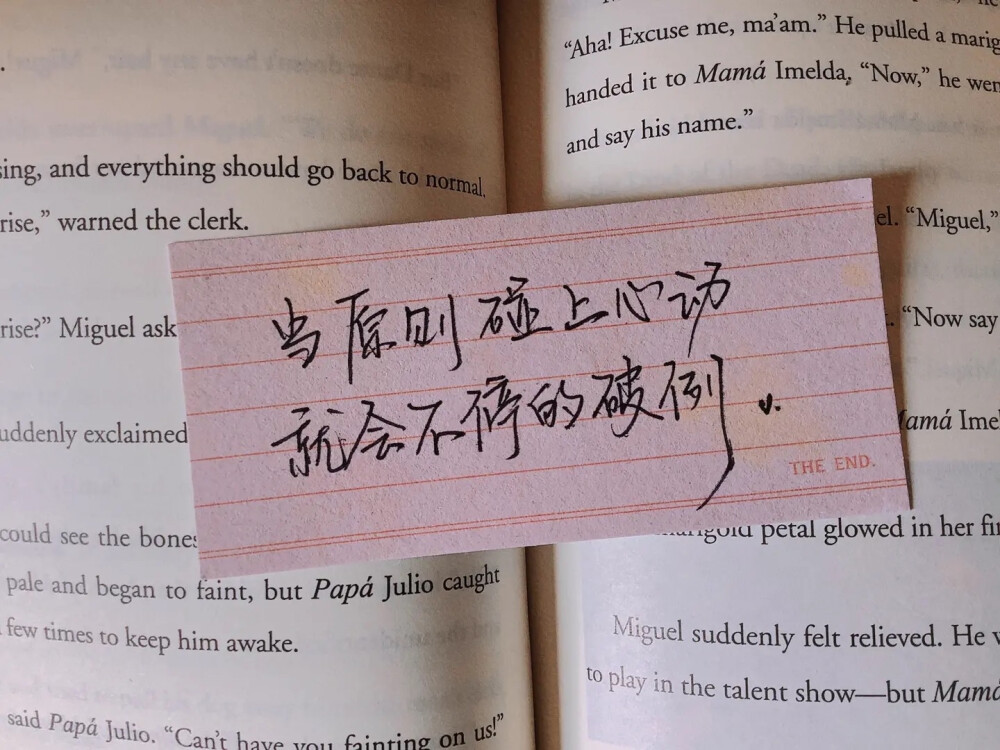 sing, and everything should go back to normal.
rise,” warned the clerk.
rise?” Miguel ask
uddenly exclaimed
could see the bones
pale and began to faint, but Papá Julio caught
few times to keep him awake.
said Papá Julio. “Can’t have you fainting on us!”
“Aha! Excuse me, ma’am.” He pulled a marig
handed it to Mamá Imelda, “Now,” he wen
and say his name.”
el. “Miguel,”
“Now say
Mamá Ime
marigold petal glowed in her fin
Miguel suddenly felt relieved. He w
to play in the talent show—but Mamá
当原则碰上心动
就会不停的破例
THE END.